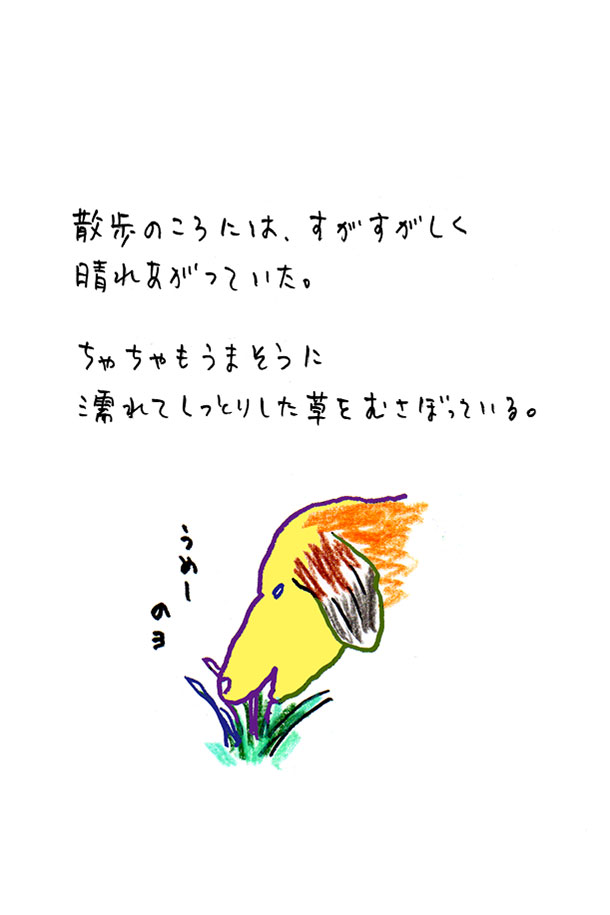 散歩のころには、すがすがしく
晴れあがっていた。
ちゃちゃもうまそうに
濡れてしっとりした草をむさぼっている。
うめー
のヨ